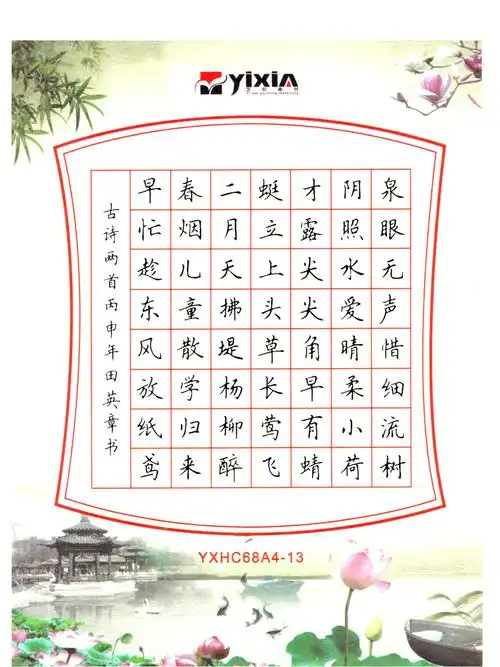 yixin
泉眼无声惜细流树
阴照水爱晴柔小荷
才露尖尖角早有蜻
蜓立上头草长莺飞
二月天拂堤杨柳醉
春烟儿童散学归来
早忙趁东风放纸鸢
古诗两首丙申年田英章书
YXHC68A4-13